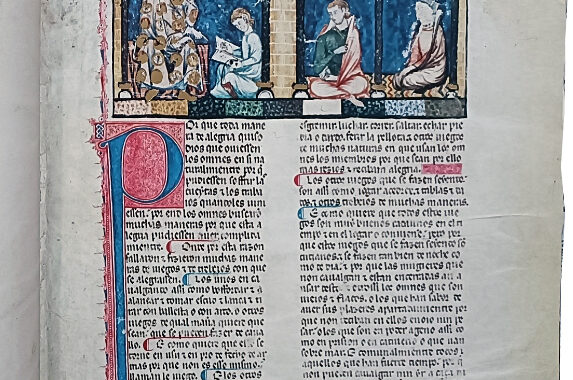 Or que toda mane
ra de alegria quiso
dios que ouiessen
los omnes en si na
turalmente por q̃
pudiessen soffrir las
cueytas e los traba
ios quandoles uini
essen; por end los omnes buscaron
muchas maneras por que esta a
legria pudiessen auer complida
miente. Onde por esta razon
fallaron e fizieron muchas mane
ras de iuegos e de trebeios con que
se alegrassen. Los unos en ca
ualgando assi como bofordar e a
lançar e tomar escud e lança e ti
rar con ballesta o con arco. o otros
iuegos de qual manera quiere que
sean. que se pueden fazer de caua
llo. E como quiere que esso se
torne en usu e en pro de fecho de ar
mas por que non es esso mismo;
llaman le iuego. E los otros
esgremir. luchar. correr. saltar. echar pie
dra o dardo. ferir la pellota; e otros iuegos
de muchas naturas en que usan los om
nes los miembros por que sean por ello
mas rezios e reciban alegria.
Los otros iuegos que se fazen seyendo.
son assi como iogar acedrex e tablas e da
dos e otros trebeios de muchas maneras.
E como quiere que todos estos iue
gos son muy buenos cadaunos en el ti
empo e en el logar o conuiene. pero por
que estos iuegos que se fazen seyendo so
cutianos. e se fazen tambien de noche co
mo de dia. e por que las mugieres que
non caualgan e estan encerradas an a
usar esto. e otrossi los omnes que son
uieios e flacos. o los que han sabor de
auer sus plazeres apartadamiente por
que non reciban en ellos enoio nin pe
sar. o los que son en poder ageno assi co
mo en prision o en catiuerio o que uan
sobre mar. E comunalmiente todos
aquellos que han fuerte tiempo. por
que non pueden caualgar nin yr a caça